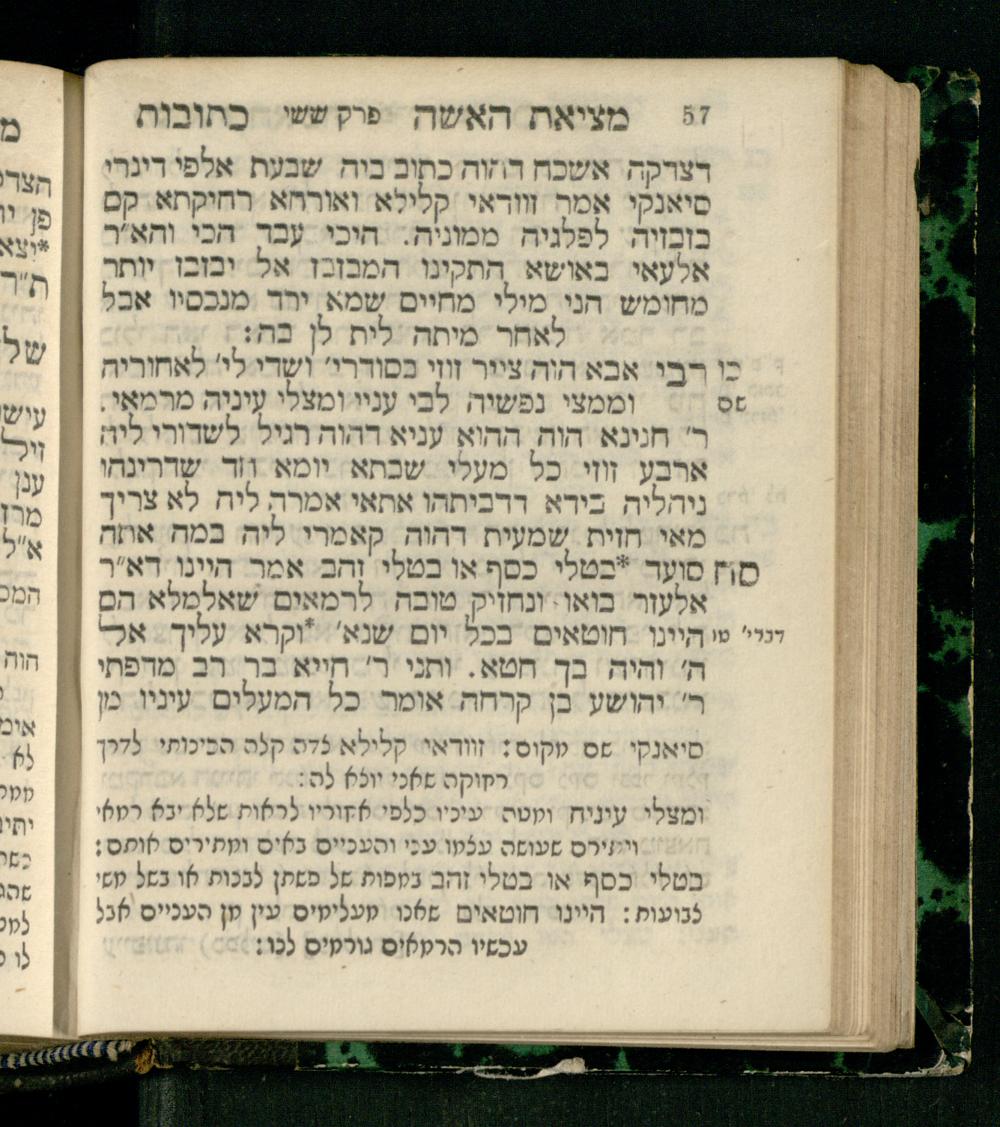 57 מציאת האשה פרק ששי כתובות
דצדקה אשכח דהוה כתוב ביה שבעת אלפי דינרי
סיאנקי אמר זוודאי קלילא ואורחא רחיקתא קם
בזבזיה לפלגיה ממוניה. היכי עבד הכי והא״ר
אלעאי באושא התקינו המבזבז אל יבזבז יותר
מחומש הני מילי מחיים שמא ירד מנכסיו אבל
לאחר מיתה לית לן בה:
כו רבי אבא הוה צייר זוזי בסודרי׳ ושדי לי׳ לאחוריה
שם וממצי נפשיה לבי עניי ומצלי עיניה מרמאי.
ר׳ חנינא הוה ההוא עניא דהוה רגיל לשדורי ליה
ארבע זוזי כל מעלי שבתא יומא חד שדרינהו
ניהליה בידא דדביתהו אתאי אמרה ליה לא צריך
מאי חזית שמעית דהוה קאמרי ליה במה אתה
סח סועד *בטלי כסף או בטלי זהב אמר היינו דא״ר
אלעזר בואו ונחזיק טובה לרמאים שאלמלא הם
דברי׳ טו היינו חוטאים בכל יום שנא׳ *וקרא עליך אל
ה׳ והיה בך חטא. ותני ר׳ חייא בר רב מדפתי
ר׳ יהושע בן קרחה אומר כל המעלים עיניו מן
סיאנקי שם מקום: זוודאי קלילא צדה קלה הכינותי לדרך
רחוקה שאני יוצא לה:
ומצלי עיניה ומטה עיניו כלפי אחוריו לראות שלא יבא רמאי
ויתירם שעושה עצמו עני והעניים באים ומתירים אותם:
בטלי כסף או בטלי זהב במפות של פשתן לבנות או בשל משי
צבועות: היינו חוטאים שאנו מעלימים עין מן העניים אבל
עכשיו הרמאים גורמים לנו:
מ
הצדק
פן יו
*יצא
ת״ר
של
עישו
זיל
ענן
מרז
א״ל
המכ
הוה
אימ
לא
ממק
יתיו
כשה
שהג
למט
לו כ